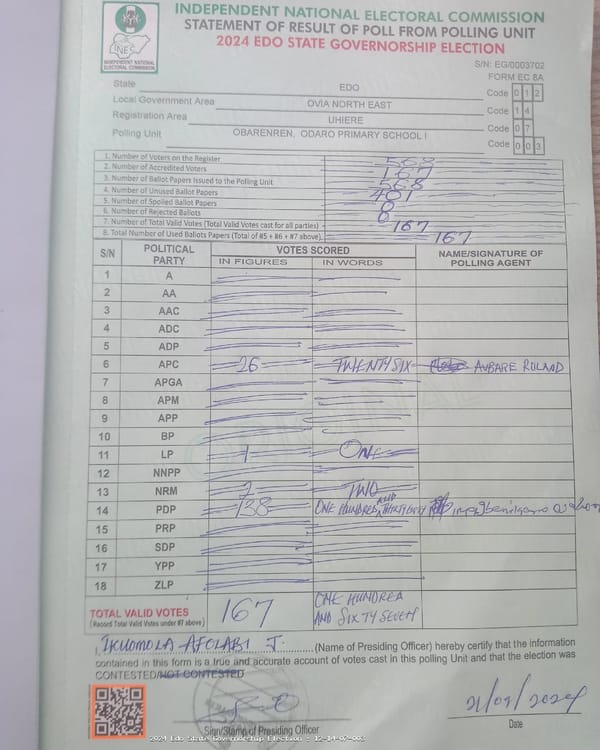 INDEPENDENT NATIONAL ELECTORAL COMMISSION
STATEMENT OF RESULT OF POLL FROM POLLING UNIT
2024 EDO STATE GOVERNORSHIP ELECTION
INEC
INDEPENDENT NATIONAL
ELECTORAL COMMISSION
S/N: EG/0003702
FORM EC 8A
State EDO Code 0 1 2
Local Government Area OVIA NORTH EAST Code 1 4
Registration Area UHIERE Code 0 7
Polling Unit OBARENREN, ODARO PRIMARY SCHOOL I Code 0 0 3
1. Number of Voters on the Register 568
2. Number of Accredited Voters 167
3. Number of Ballot Papers Issued to the Polling Unit 568
4. Number of Unused Ballot Papers 401
5. Number of Spoiled Ballot Papers 0
6. Number of Rejected Ballots 0
7. Number of Total Valid Votes (Total Valid Votes cast for all parties) 167
8. Total Number of Used Ballots Papers (Total of #5 + #6 + #7 above). 167
S/N POLITICAL PARTY VOTES SCORED NAME/SIGNATURE OF POLLING AGENT
IN FIGURES IN WORDS
1 A
2 AA
3 AAC
4 ADC
5 ADP
6 APC 26 TWENTY SIX AUBARE ROLAND
7 APGA
8 APM
9 APP
10 BP
11 LP 1 ONE
12 NNPP
13 NRM 2 TWO
14 PDP 138 ONE HUNDRED AND
15 PRP
16 SDP
17 YPP
18 ZLP
TOTAL VALID VOTES 167 ONE HUNDREA
(Record Total Valid Votes under #7 above) AND SIXTY SEVEN
I, IKUOMOLA AFOLABI J. (Name of Presiding Officer) hereby certify that the information
contained in this form is a true and accurate account of votes cast in this polling Unit and that the election was
CONTESTED/NOT CONTESTED
21/09/2024
Sign/Stamp of Presiding Officer Date
2024 Edo State Governorship Election - 12-14-07-003